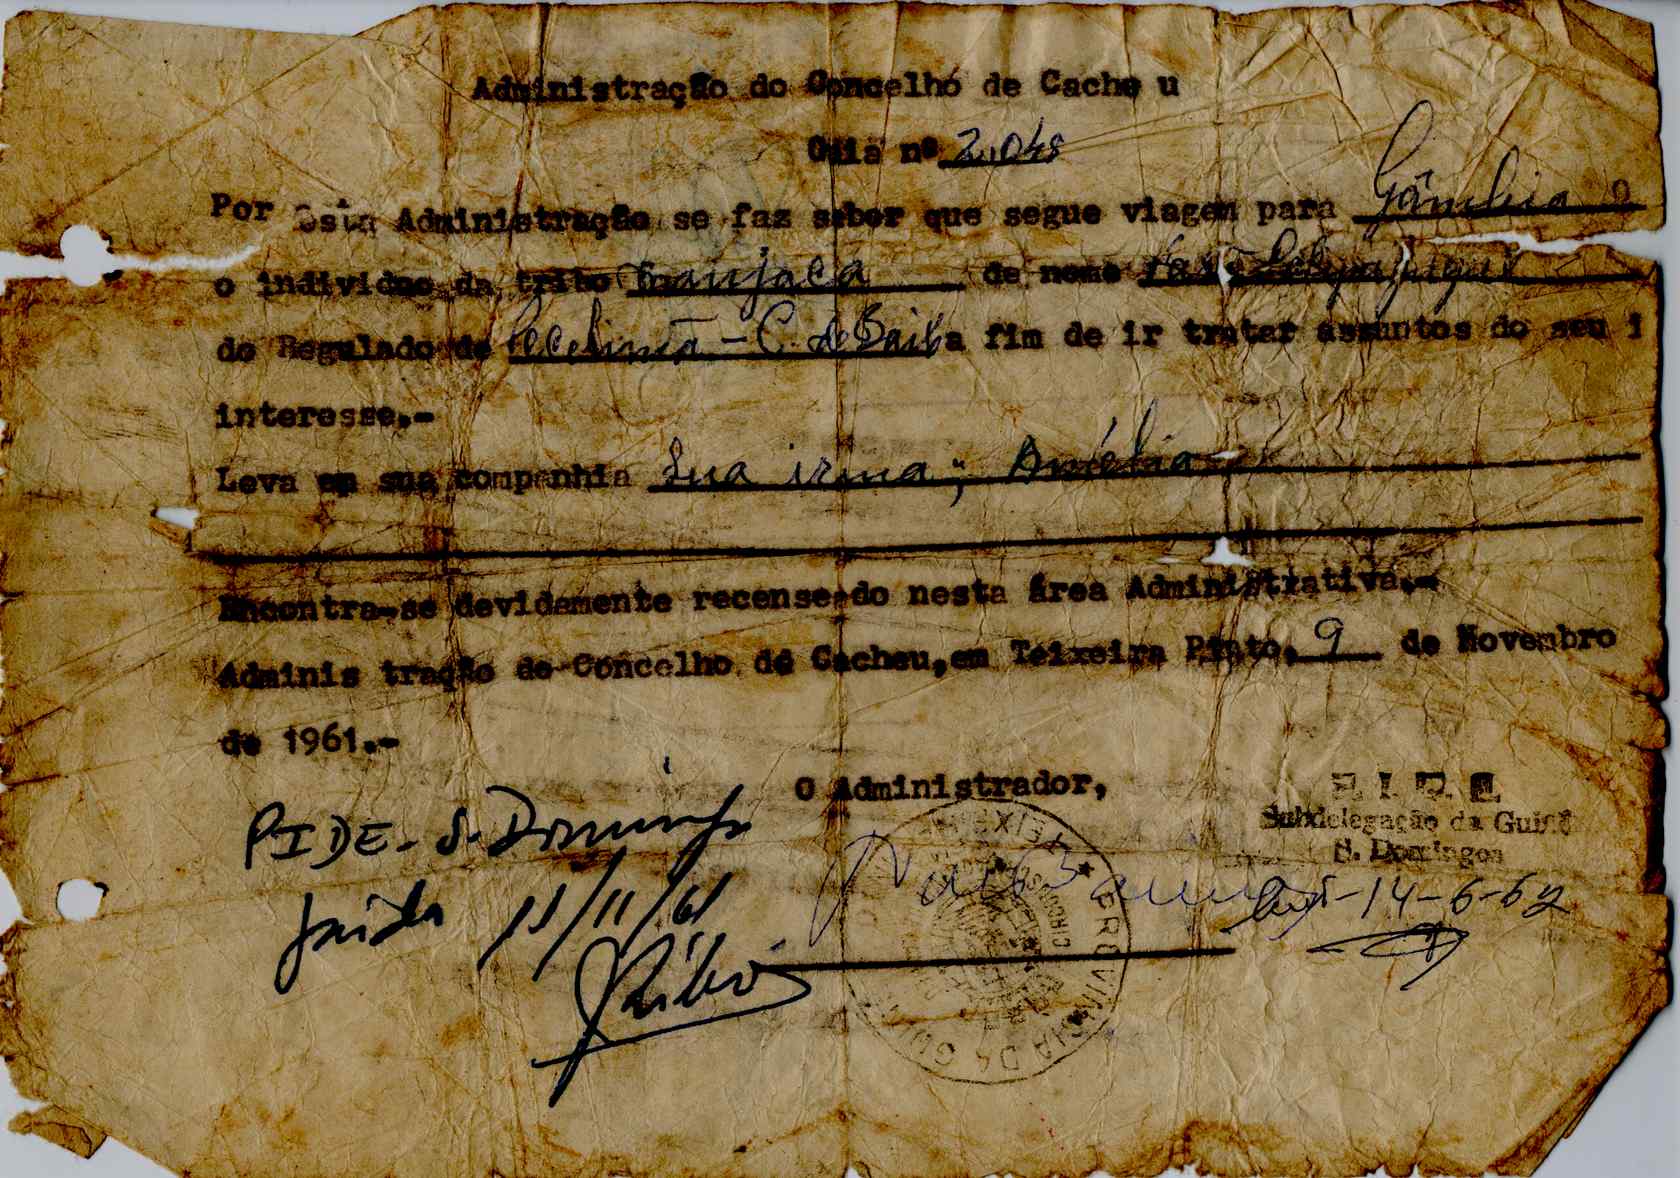 Administração do Concelho de Cache u
Guia nº 2.048
Por esta Administração se faz saber que segue viagem para Gâmbia o
o individuo da tribo Manjaca de nome
do Regulado de Pecixe - C. de Baix a fim de ir tratar assuntos do seu i
interesse.-
Leva em sua companhia sua irmã; Amélia
Encontra-se devidamente recenseado nesta área Administrativa.-
Adminis tração do Concelho de Cacheu, em Teixeira Pinto, 9 de Novembro
de 1961.-
O Administrador,
P. I. D. E.
Subdelegação da Guiné
S. Domingos
PIDE - S. Domingos
Saida 11/11/61
14-6-62
PROVINCIA DA GUINÉ